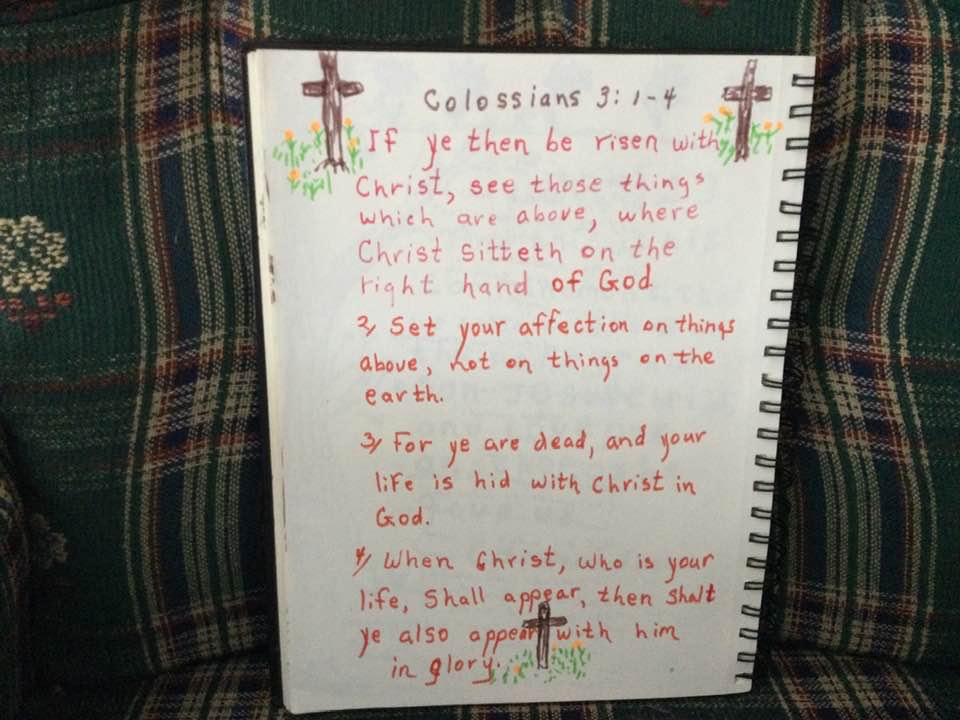 Colossians 3:1-4
If ye then be risen with
Christ, see those things
which are above, where
Christ sitteth on the
right hand of God
2/ Set your affection on things
above, not on things on the
earth.
3/ For ye are dead, and your
life is hid with Christ in
God.
4/ When Christ, who is your
life, Shall appear, then shalt
ye also appear with him
in glory.